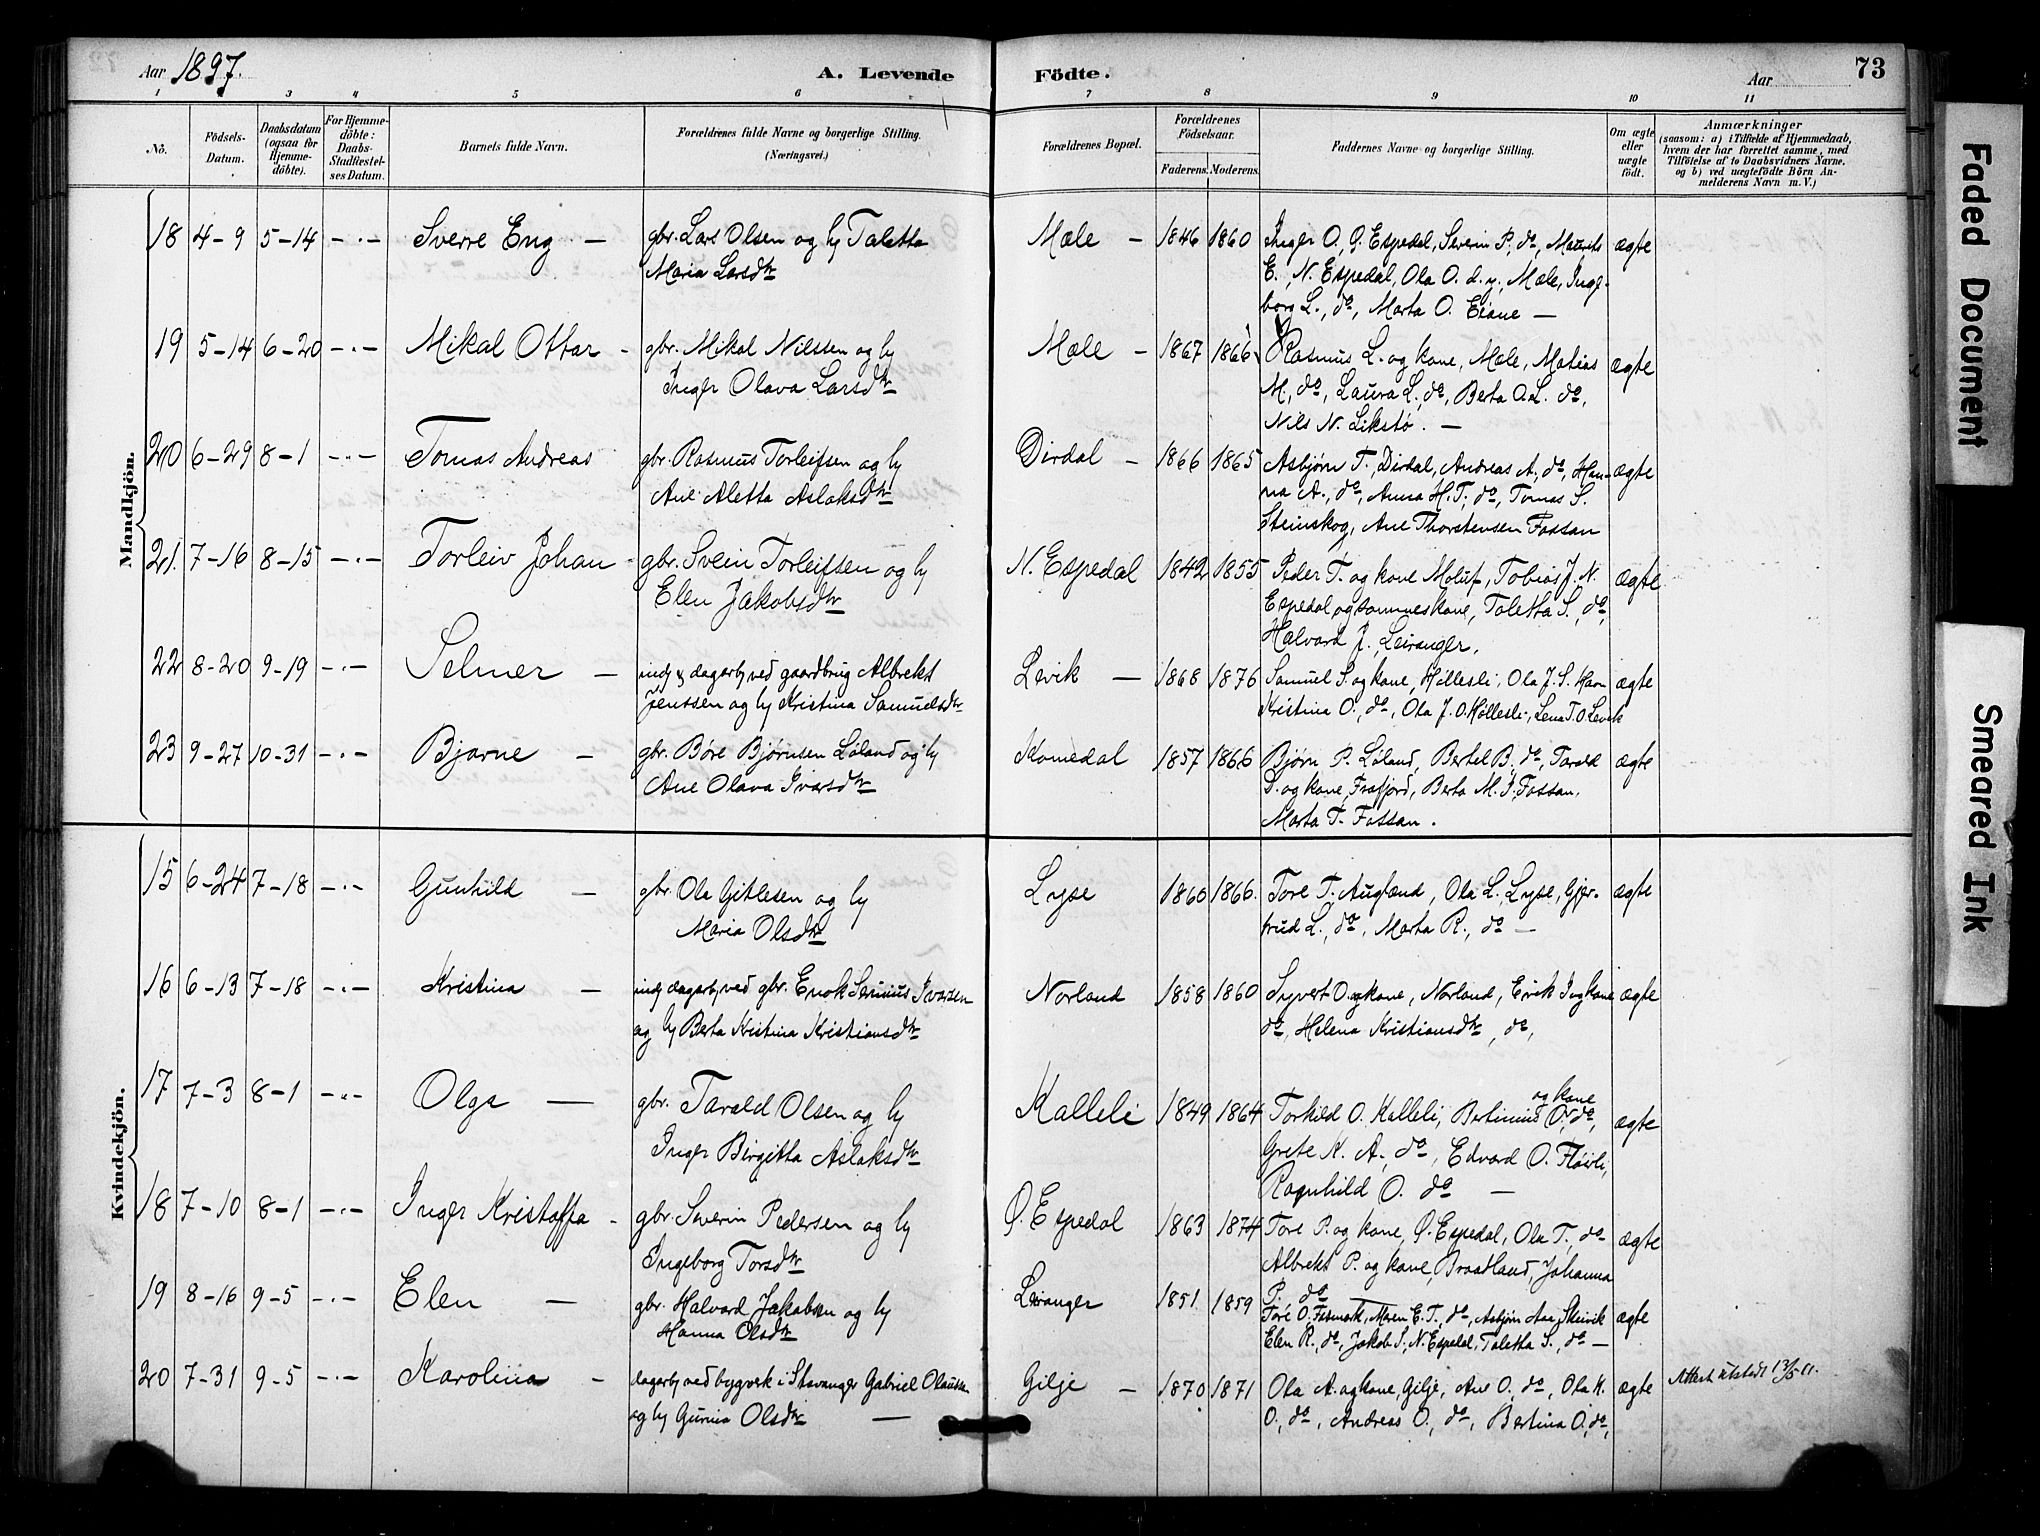 Aar 1897.
A. Levende Födte.
Aar
73
1 2 3 4 5 6 7 8 9 10 11
Nô. Födsels-Datum. Daabsdatum (ogsaa for Hjemme-döbte). For Hjemme-döbte: Daabs-Stadfæstel-ses Datum. Barnets fulde Navn. Forældrenes fulde Navne og borgerlige Stilling. (Næringsvei.) Forældrenes Bopæl. Forældrenes Födselsaar. Faderens. Moderens. Faddernes Navne og borgerlige Stilling. Om ægte eller uægte födt. Anmærkninger (saasom: a) i Tilfælde af Hjemmedaab, hvem der har forrettet samme, med Tilföielse af to Daabsvidners Navne, og b) ved uægtefödte Börn An-melderens Navn m. V.)
Mandkjön.
18 4-9 5-14 -"- Sverre Eng — gbr. Lars Olsen og hu Taletta Mæle — 1846 1860 Inger O. Ø. Espedal, Severin P., do, Maurits ægte
Maria Larsdtr E. N. Espedal, Ola O. d. y., Mæle, Inge-
borg L., do, Marta O. Eiane —
19 5-14 6-20 -"- Mikal Ottar - gbr. Mikal Nilssen og hu Mæle — 1867 1866 Rasmus L. og kone, Mæle, Matias ægte
Inger Olava Larsdtr M., do, Laura L., do, Berta O. L. do,
Nils N. Likstø. —
20 6-29 8-1 -"- Tomas Andreas gbr. Rasmus Torleifsen og hu Dirdal — 1866 1865 Asbjørn T., Dirdal, Andreas A., do, Han- ægte
Ane Aletta Aslaksdtr na A., do, Anna H. T., do, Tomas S.
Steinskog, Ane Thorstensen Fossan
21. 7-16 8-15 -"- Torleiv Johan - gbr. Svein Torleifsen og hu N. Espedal 1842 1855 Peder T. og kone Moluf, Tobias J. N. ægte
Elen Jakobsdtr Espedal og sammes kone, Taletta S., do,
Halvard J. Leiranger,
22 8-20 9-19 -"- Selmer — indr & dagarb. ved gaardbrug Albrekt Levik — 1868 1876 Samuel S. og kone, Høllesli, Ola J. S. Havn ægte
Jenssen og hu Kristina Samuelsdtr Kristina O., do, Ola J. O. Høllesli, Lena T. O. Levik
23 9-27 10-31 -"- Bjarne — gbr. Børe Bjørnsen Løland og hu Komedal 1857 1866 Bjørn P. Løland, Bertel B. do, Tarald ægte
Ane Olava Ivarsdtr D. og kone, Frafjord, Berta M. I. Fossan,
Marta T. Fossan.
Kvindekjön.
15 6-24 7-18 -"- Gunhild — gbr. Ola Gitlesen og hu Lyse 1860 1866. Tore T. Augland, Ola L. Lyse, Gjer- ægte
Maria Olsdtr trud L., do, Marta R., do —
16 6-13 7-18 -"- Kristina — indr dagarb. ved gbr. Enok Serinius Ivarsen Norland 1858 1860 Syvert O. og kone, Norland, Erik I. og kone ægte
og hu Berta Kristina Kristiansdtr do, Helena Kristiansdtr, do,
17 7-3 8-1 -"- Olga — gbr. Tarald Olsen og hu Kalleli 1849 1864 Torkild O. Kalleli, Bertinius O. og kone, do, ægte
Inger Birgitta Aslaksdtr Grete K. A., do, Edvard O. Fløirli,
Ragnhild O. do —
18 7-10 8-1 -"- Inger Kristoffa - gbr. Severin Pedersen og hu Ø. Espedal 1863 1874 Tore P. og kone, Ø. Espedal, Ola T., do ægte
Ingeborg Torsdtr Albrekt P. og kone, Bradland, Johanna
P. do —
19 8-16 9-5 -"- Elen — gbr. Halvard Jakobsen og hu Leiranger 1851 1859 Tore O. Fosmark, Maren E. T., do, Asbjørn Steivik ægte
Hanna Olsdtr Elen R., do, Jakob S., N. Espedal, Taletta S., do —
20 7-31 9-5 -"- Karolina - dagarb. ved bygverk i Stavanger Gabriel Olaussen Gilje — 1870 1871 Ola A. og kone, Gilje, Ane O., do, Ola K. ægte Attest utstedt 13/5 11.
og hu Gurina Olsdtr — O., do, Andreas O., do, Bertina O., do,
Faded Document
Smeared Ink